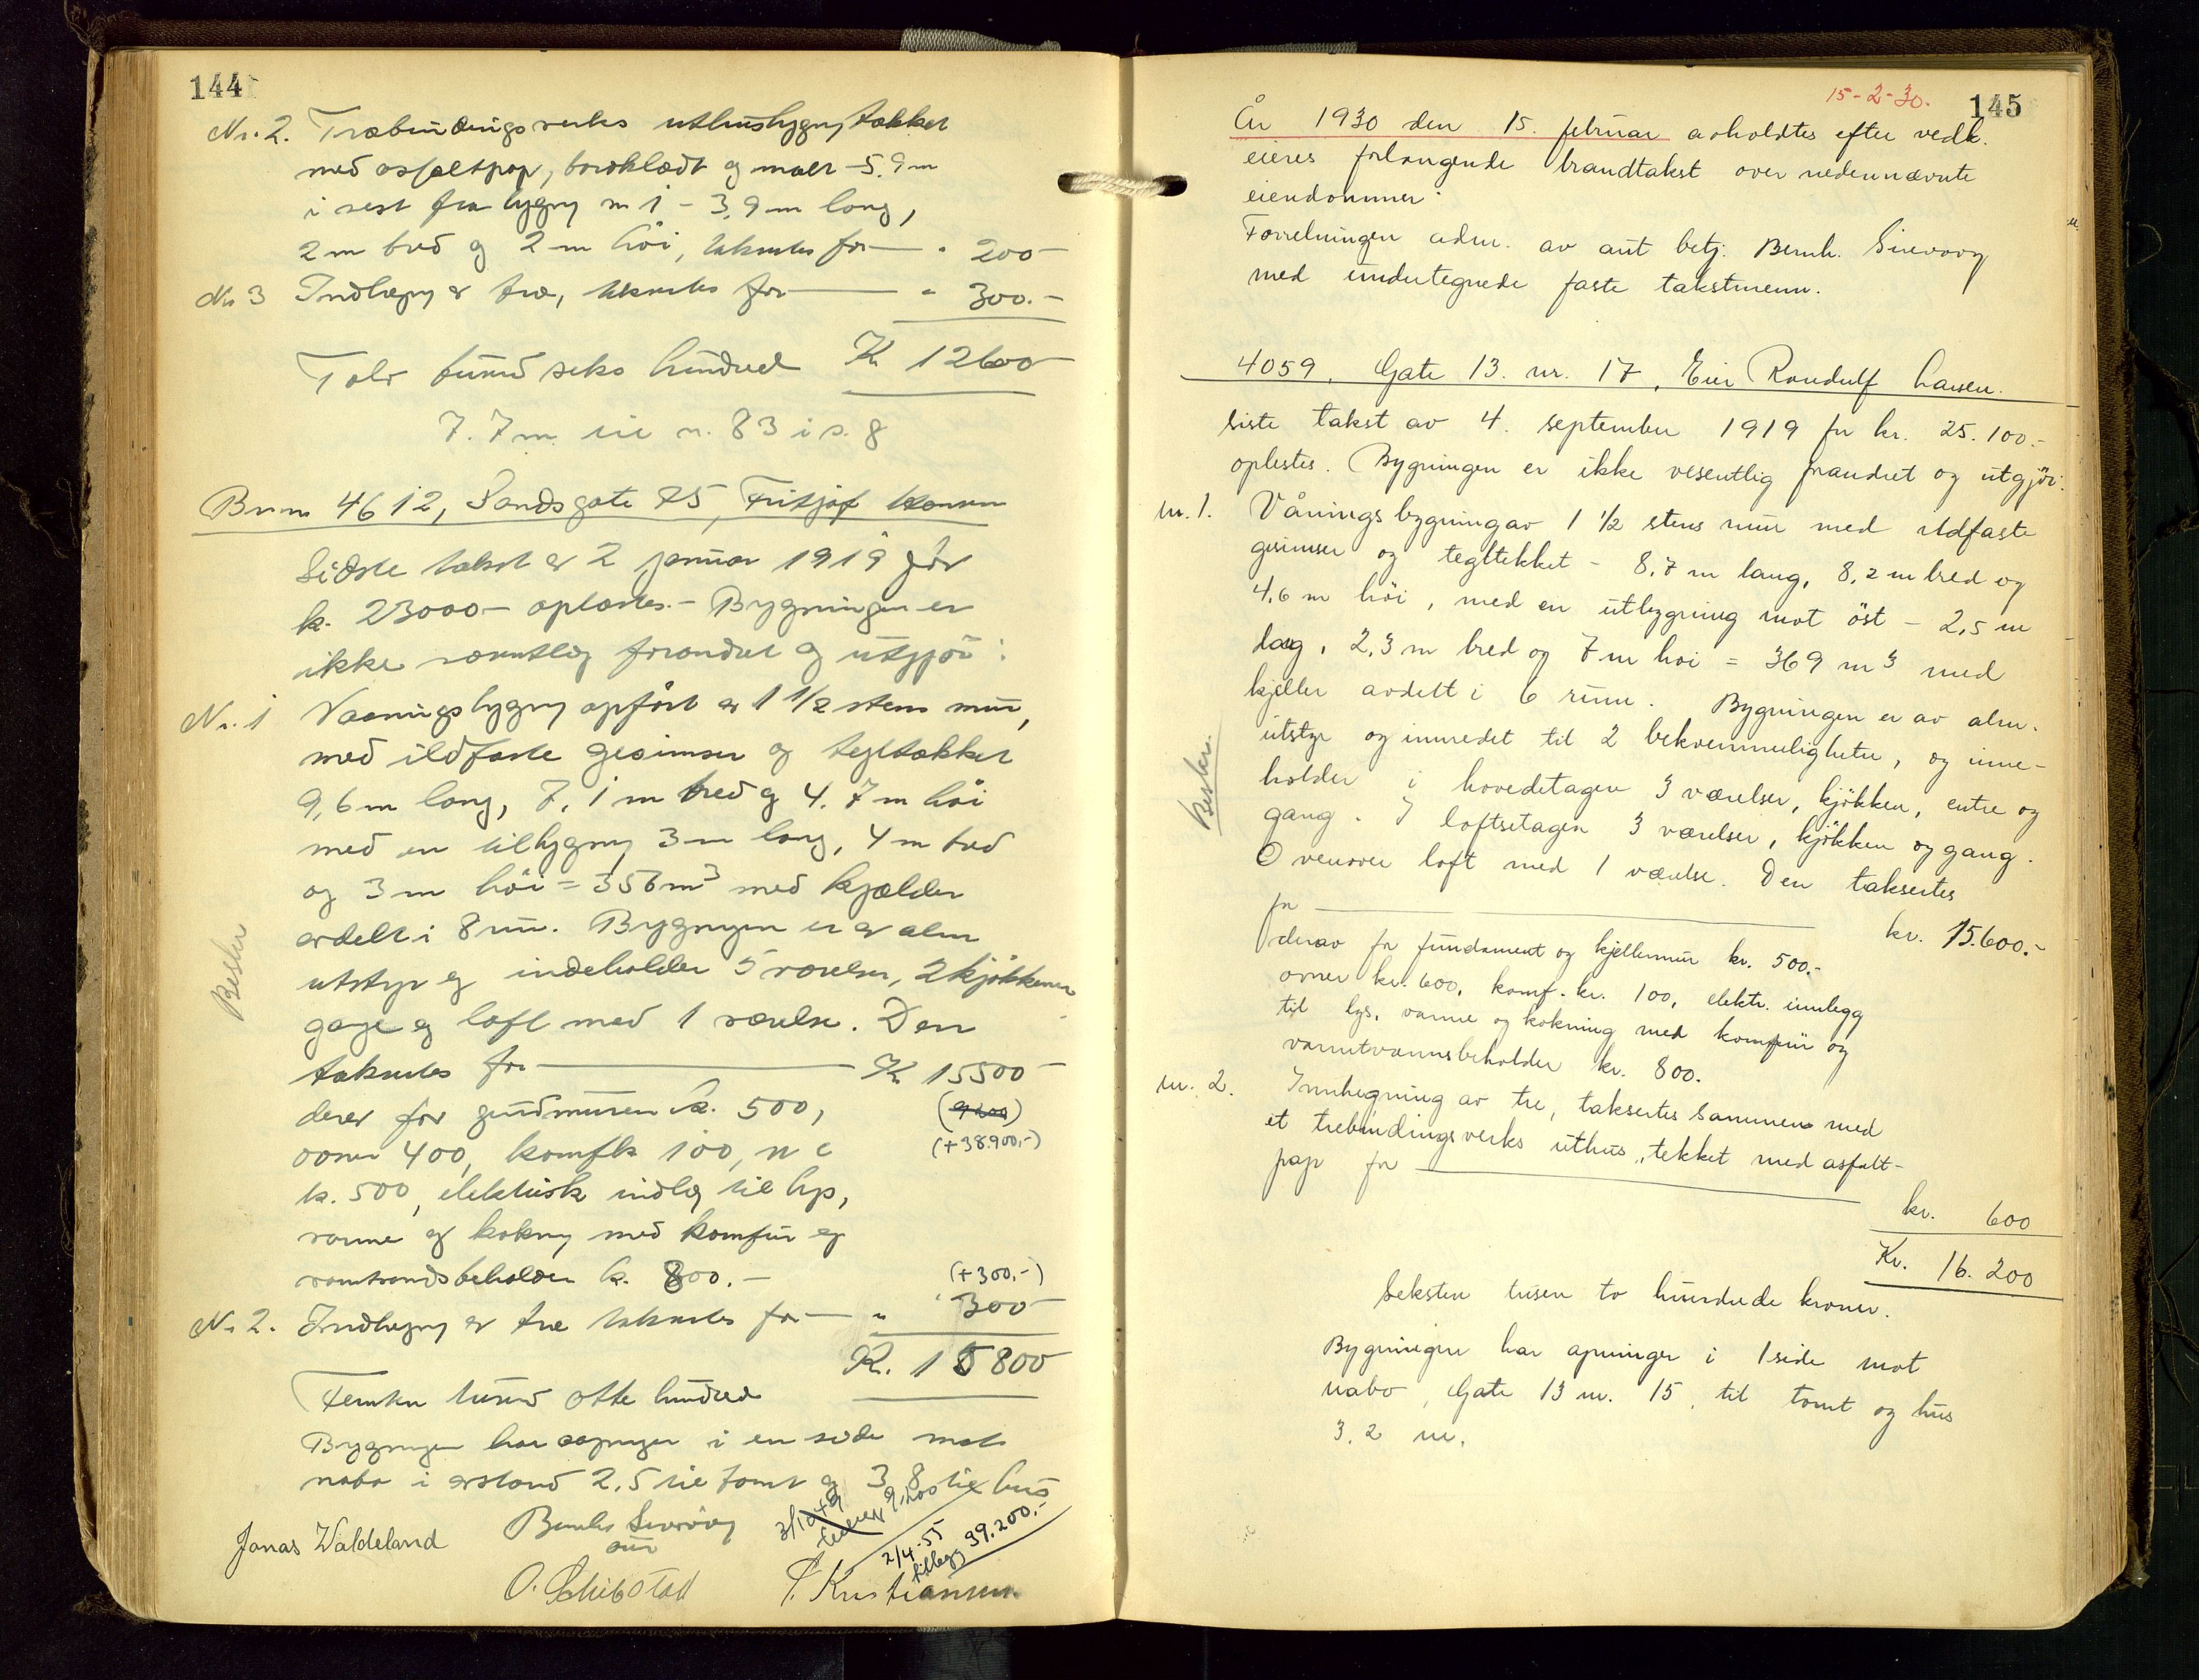 144
Nr. 2. Træbindingsverks uthusbygn, tækket
med asfaltpap, bordklædt og malt - 5.9 m
i vest fra bygn nr 1 - 3,9 m lang,
2 m bred og 2 m höi, taksertes for — " 200-
Nr 3 Indhegn av træ, takseres for — " 300.-
Tolv tusind seks hundred Kr 12600
7.7 m til n. 83 i s. 8
Brnr 4612, Sandsgate 75, Fritjof
Sidste takst av 2 januar 1919 for
kr. 23000- oplæstes. - Bygningen er
ikke væsentlig forandret og utgjör:
Nr. 1 Vaaningsbygn opfört av 1 1/2 stens mur,
med ildfaste gesimser og tegltækket
9,6 m lang, 7,1 m bred og 4.7 m höi
med en tilbygn 3 m lang, 4 m bred
og 3 m höi = 356 m3 med kjælder
avdelt i 8 rum. Bygningen er av alm
utstyr og indeholder 5 værelser, 2 kjökkener
gange og loft med 1 værelse. Den
Besikr
taksertes for — Kr 15500-
derav for grundmuren kr. 500, (9200)
ovner 400, komf kr 100, w c (+38.900,-)
kr. 500, elektrisk indlæg til lys,
varme og kokning med komfür og
varmtvandsbeholder kr. 800.- (+300,-)
Nr 2. Indhegn av træ taksertes for — " 300-
Kr. 15800
Femten tusind otte hundred
Bygningen har aapninger i en side mot
nabo i avstand 2,5 til tomt og 3,8 til hus
3/10 49
9200
2/4-55
tillegg 39.200.-
Jonas Waldeland Bernh Sirevaag
O. Schibstad P. Kristiansen
145
15-2-30.
År 1930 den 15. februar avholdtes efter vedk.
eieres forlangende brandtakst over nedennævnte
eiendommer:
Forretningen adm. av aut betj. Bernh. Sirevaag
med undertegnede faste takstmenn.
4059, Gate 13. nr. 17, Eier Randulf Larsen.
Siste takst av 4. september 1919 for kr. 25.100.-
oplestes. Bygningen er ikke vesentlig forandret og utgjör:
nr. 1. Våningsbygning av 1 1/2 stens mur med ildfaste
gesimser og tegltekket - 8,7 m lang, 8,2 m bred og
4,6 m höi, med en utbygning mot öst - 2,5 m
lang, 2,3 m bred og 7 m höi = 369 m3 med
kjeller avdelt i 6 rum. Bygningen er av alm.
utstyr og innredet til 2 bekvemmeligheter, og inne-
holder i hovedetagen 3 værelser, kjökken, entre og
gang. I loftsetagen 3 værelser, kjökken og gang.
Ovenover loft med 1 værelse. Den taksertes
Besikr.
for — kr. 15.600.-
derav for fundament og kjellermur kr. 500.-
ovner kr. 600, komf. kr. 100, elektr. innlegg
til lys, varme og kokning med komfür og
varmtvannsbeholder kr. 800.
nr. 2. Innhegning av tre, taksertes sammen med
et trebindingsverks uthus, tekket med asfalt-
pap for —
kr. 600
Kr. 16.200
Seksten tusen to hundrede kroner.
Bygningen har åpninger i 1 side mot
nabo, Gate 13 nr. 15, til tomt og hus
3.2 m.